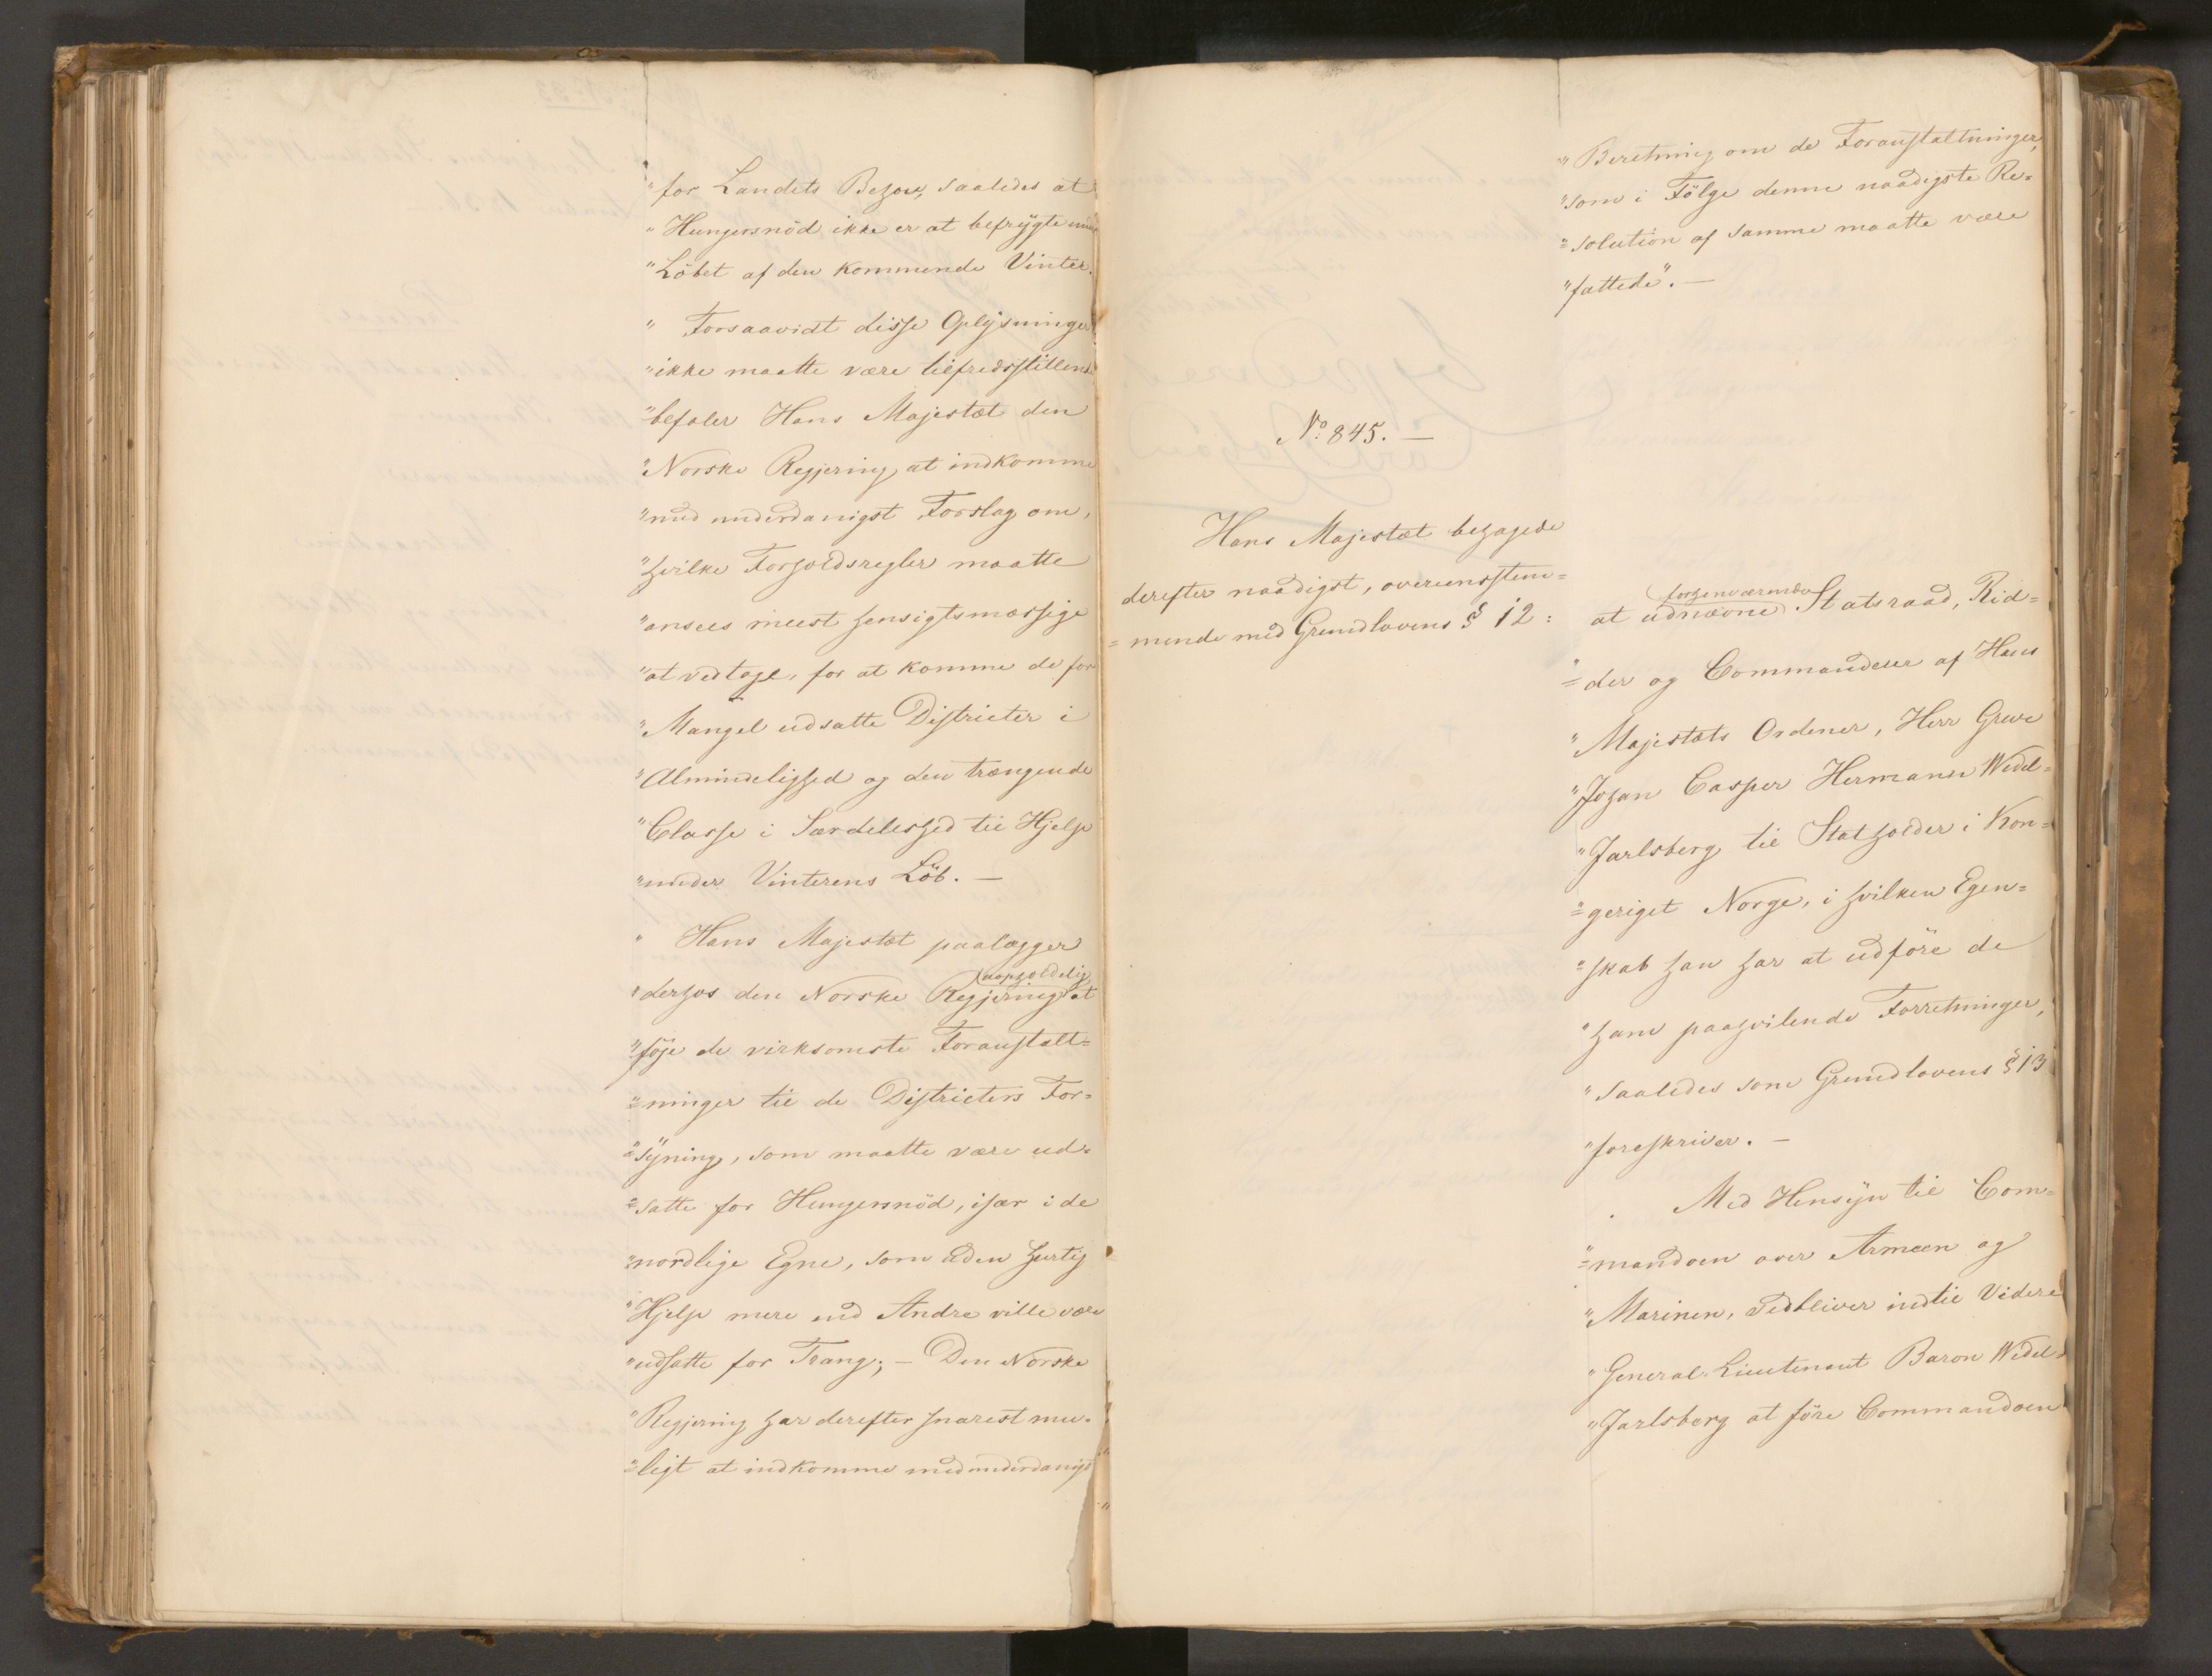 "for Landets Behov, saaledes at
"Hungersnöd ikke er at befrÿgte under
"Löbet af den kommende Vinter.
" Forsaavidt disse Oplÿsninger
"ikke maatte være tilfredsstillende
"befaler Hans Majestæt den
"Norske Regjering at indkomme
"med underdanigst Forslag om,
"hvilke Forholdsregler maatte
"ansees meest hensigtsmæssige
"at vedtage, for at komme de for
"Mangel udsatte Districter i
"Almindelighed og den trængende
"Classe i Særdeleshed til Hjelp
"under Vinterens Löb. —
" Hans Majestæt paalægger
uopholdelig
"derhos den Norske Regjering at
"föje de virksomste Foranstalt=
"=ninger til de Districters For=
"=sÿning, som maatte være ud=
"=satte for Hungersnöd, især i de
"nordlige Egne, som uden hurtig
"Hjelp mere end Andre ville være
"udsatte for Trang; — Den Norske
"Regjering har derefter snarest mu=
"=ligt at indkomme med underdanigst
"Beretning om de Foranstaltninger,
"som i Fölge denne naadigste Re=
"=solution af samme maatte være
"fattede". —
No. 845. —
Hans Majestæt behagede
derefter naadigst, overeensstem=
=mende med Grundlovens § 12:
forhenværende
at udnævne Statsraad, Rid=
"=der og Commandeur af Hans
"Majestæts Ordener, Herr Greve
"Johan Casper Hermann Wedel=
"Jarlsberg til Statholder i Kon=
"=geriget Norge, i hvilken Egen=
"=skab han har at udföre de
"ham paahvilende Forretninger,
"saaledes som Grundlovens § 13
"foreskriver. —
" Med Hensÿn til Com=
"=mandoen over Armeen og
"Marinen, vedbliver indtil Videre
"General-Lieutenant Baron Wedel=
"Jarlsberg at före Commandoen